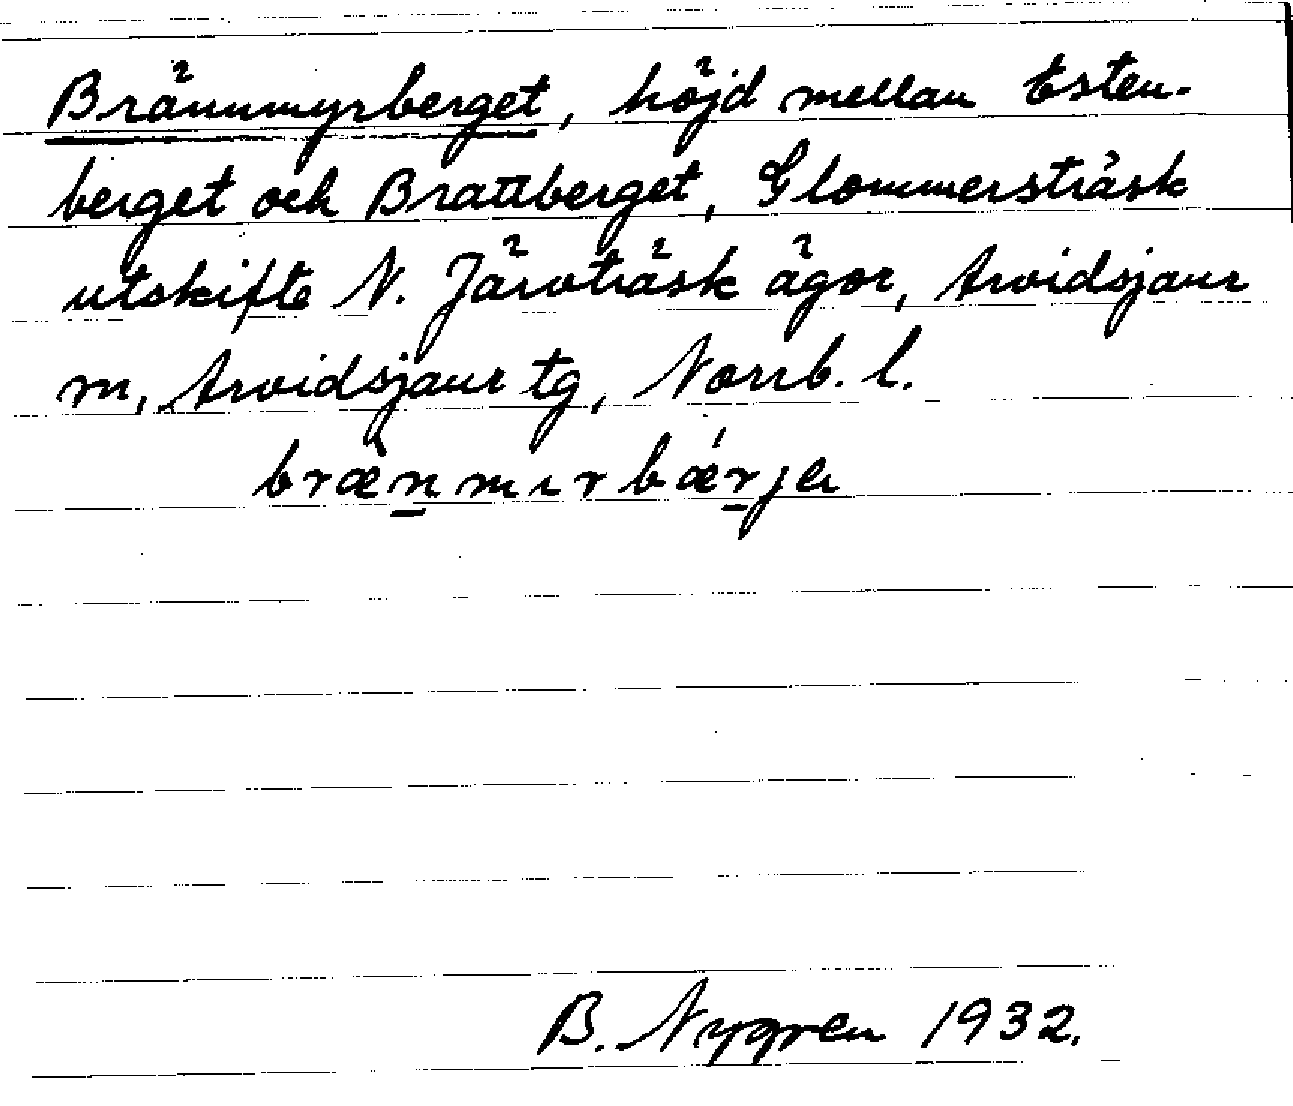 Brännmyrberget, höjd mellan Esten-
berget och Brattberget, Glommersträsk
utskifte N. Järvträsk ägor, Arvidsjaur
m, Arvidsjaur tg, Norrb. l.
bræ̀nmırbǽrje
B. Nygren 1932.